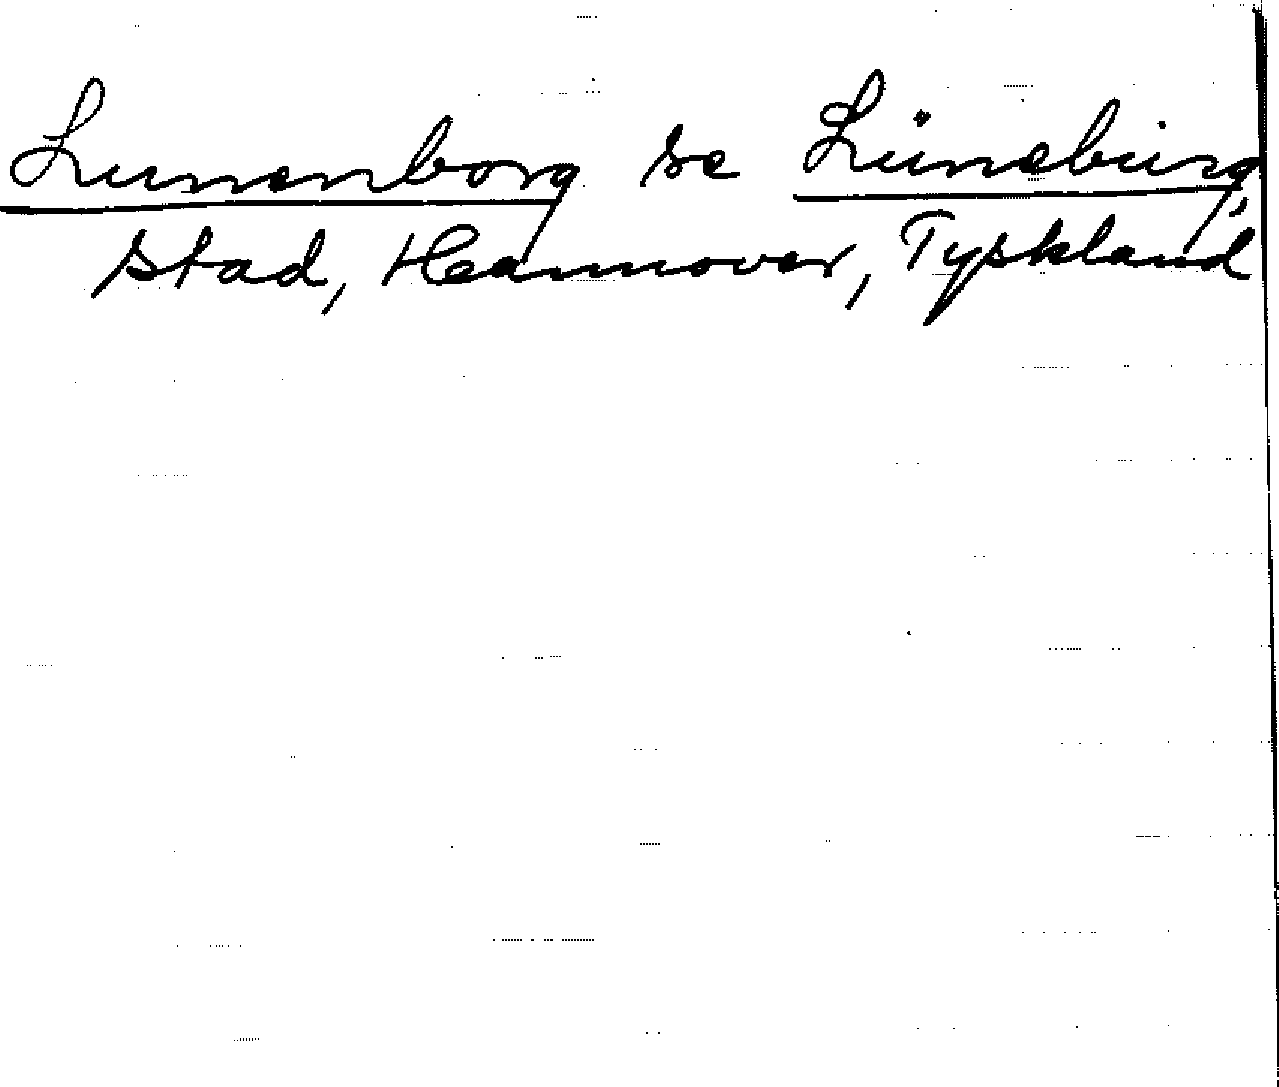 Lunenborg se Lüneburg,
stad, Hannover, Tyskland